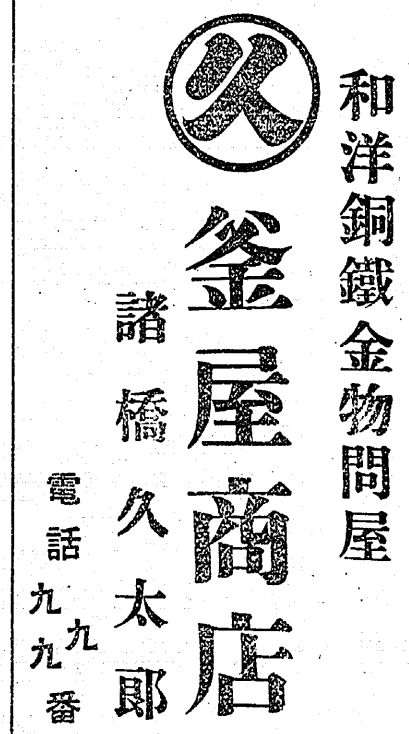 和洋銅鐵金物問屋
久
釜屋商店
諸橋久太郎
電話九九九番